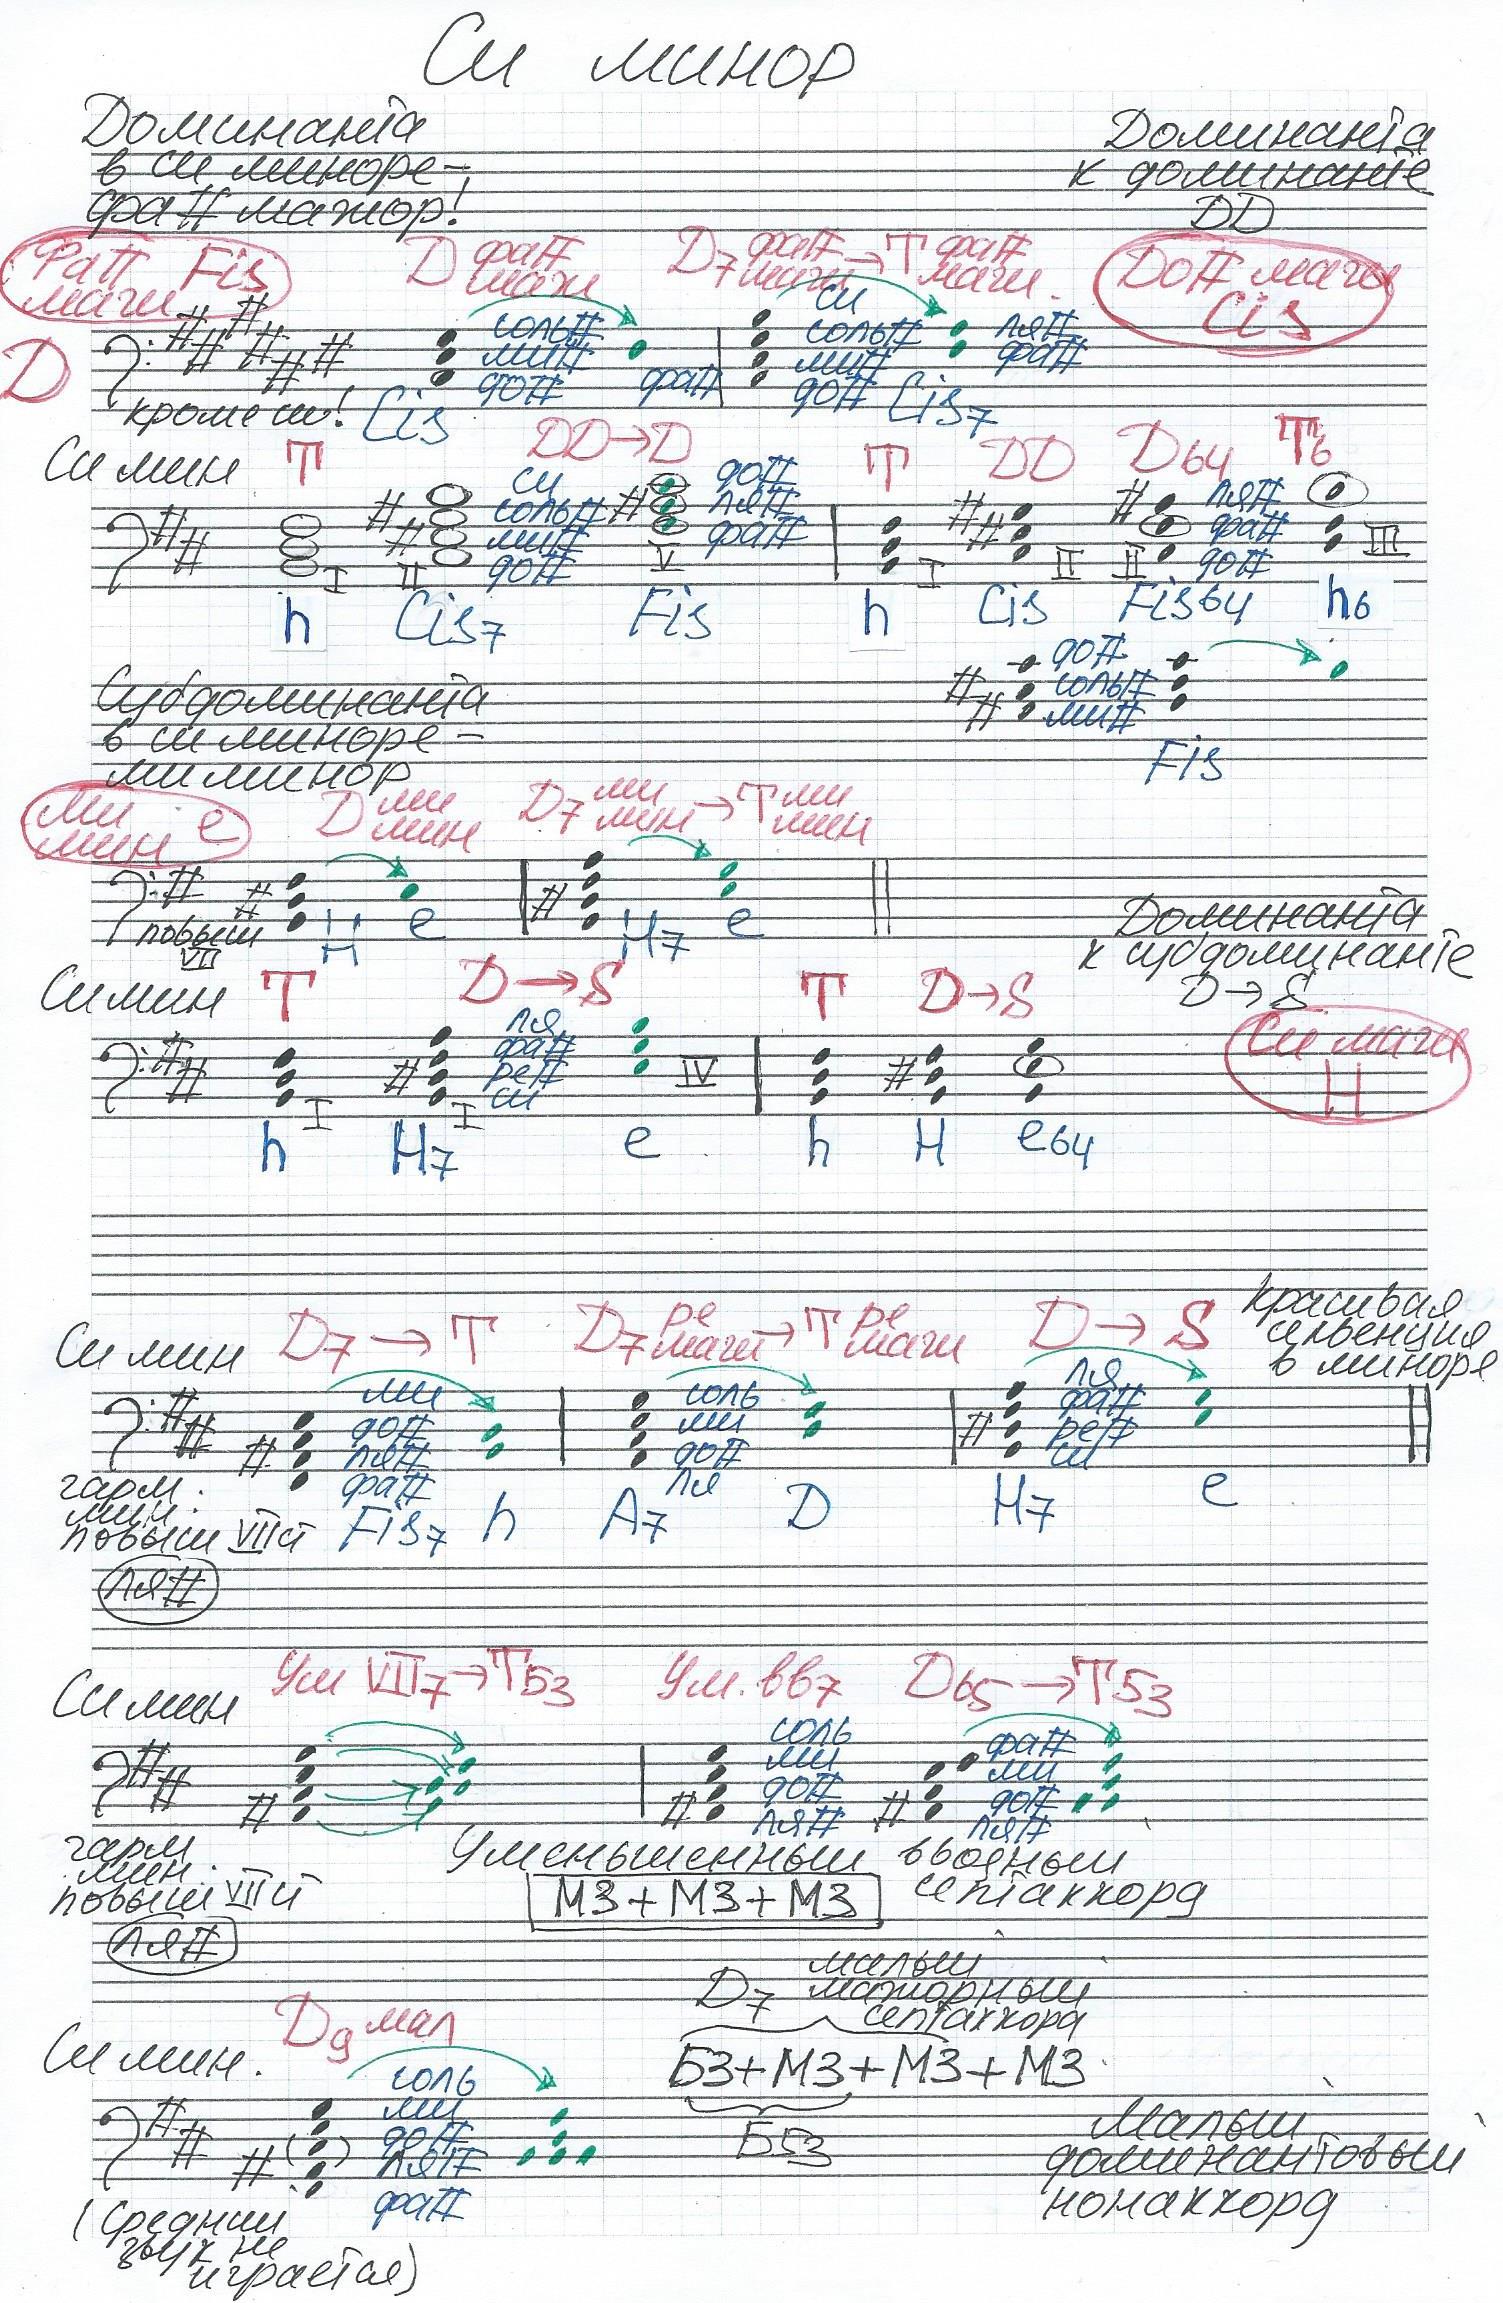 Си минор
Доминанта
в си миноре –
фа# мажор!
Доминанта
к доминанте
DD
Фа# Fis
маж
D фа#
маж
D7 фа# маж → T фа# маж.
До# маж
Cis
D
кроме си!
соль#
ми#
до#
фа#
Cis
си
соль#
ми#
до#
ля#
фа#
Cis7
Си мин T DD→D T DD D64 T6
си
соль#
ми#
до#
до#
ля#
фа#
ля#
фа#
до#
I II V I II II III
h Cis7 Fis h Cis Fis64 h6
до#
соль#
ми#
Fis
Субдоминанта
в си миноре –
ми минор
ми e
мин
D ми
мин
D7 ми мин → T ми мин
повыш
VII
H e H7 e
Доминанта
к субдоминанте
D→S
Си маж
H
Си мин T D→S T D→S
ля
фа#
ре#
си
I I IV
h H7 e h H e64
Красивая
секвенция
в миноре
Си мин D7 → T D7 ре маж → T ре маж D → S
ми
до#
ля#
фа#
соль
ми
до#
ля
ля
фа#
ре#
си
гарм.
мин.
повыш VII ст
ля#
Fis7 h A7 D H7 e
Си мин Ум VII7→T53 Ум. вв7 D65→T53
соль
ми
до#
ля#
фа#
ми
до#
ля#
гарм
мин.
повыш VII ст
ля#
Уменьшенный вводный
септаккорд
М3+М3+М3
D7 малый
мажорный
септаккорд
Б3+М3+М3+М3
Б53
Си мин. D9 мал
соль
ми
до#
ля#
фа#
(средний
звук не
играется)
Малый
доминантовый
нонаккорд